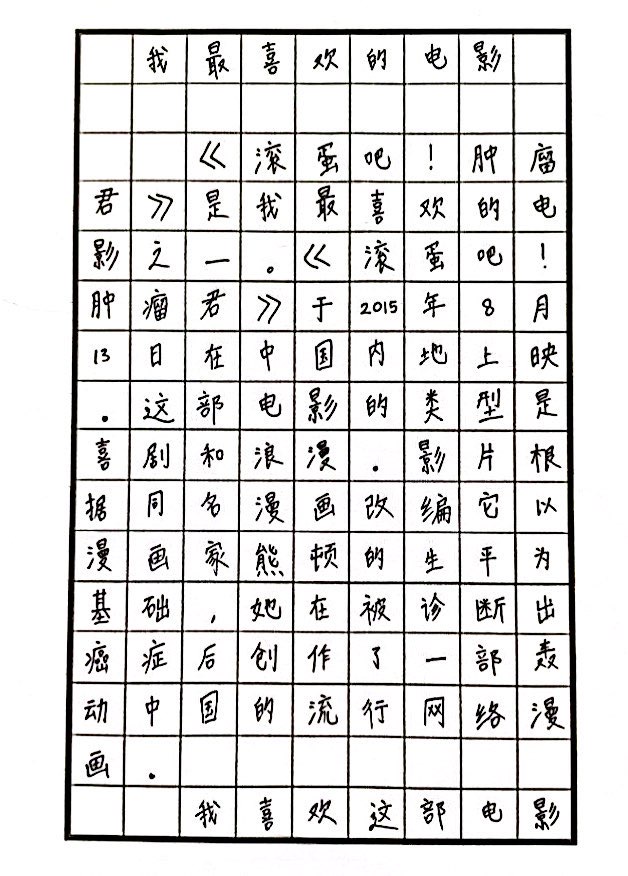 我最喜欢的电影
《滚蛋吧！肿瘤
君》是我最喜欢的电
影之一。《滚蛋吧！
肿瘤君》于2015年8月
13日在中国内地上映
。这部电影的类型是
喜剧和浪漫。影片根
据同名漫画改编它以
漫画家熊顿的生平为
基础，她在被诊断出
癌症后创作了一部轰
动中国的流行网络漫
画。
我喜欢这部电影